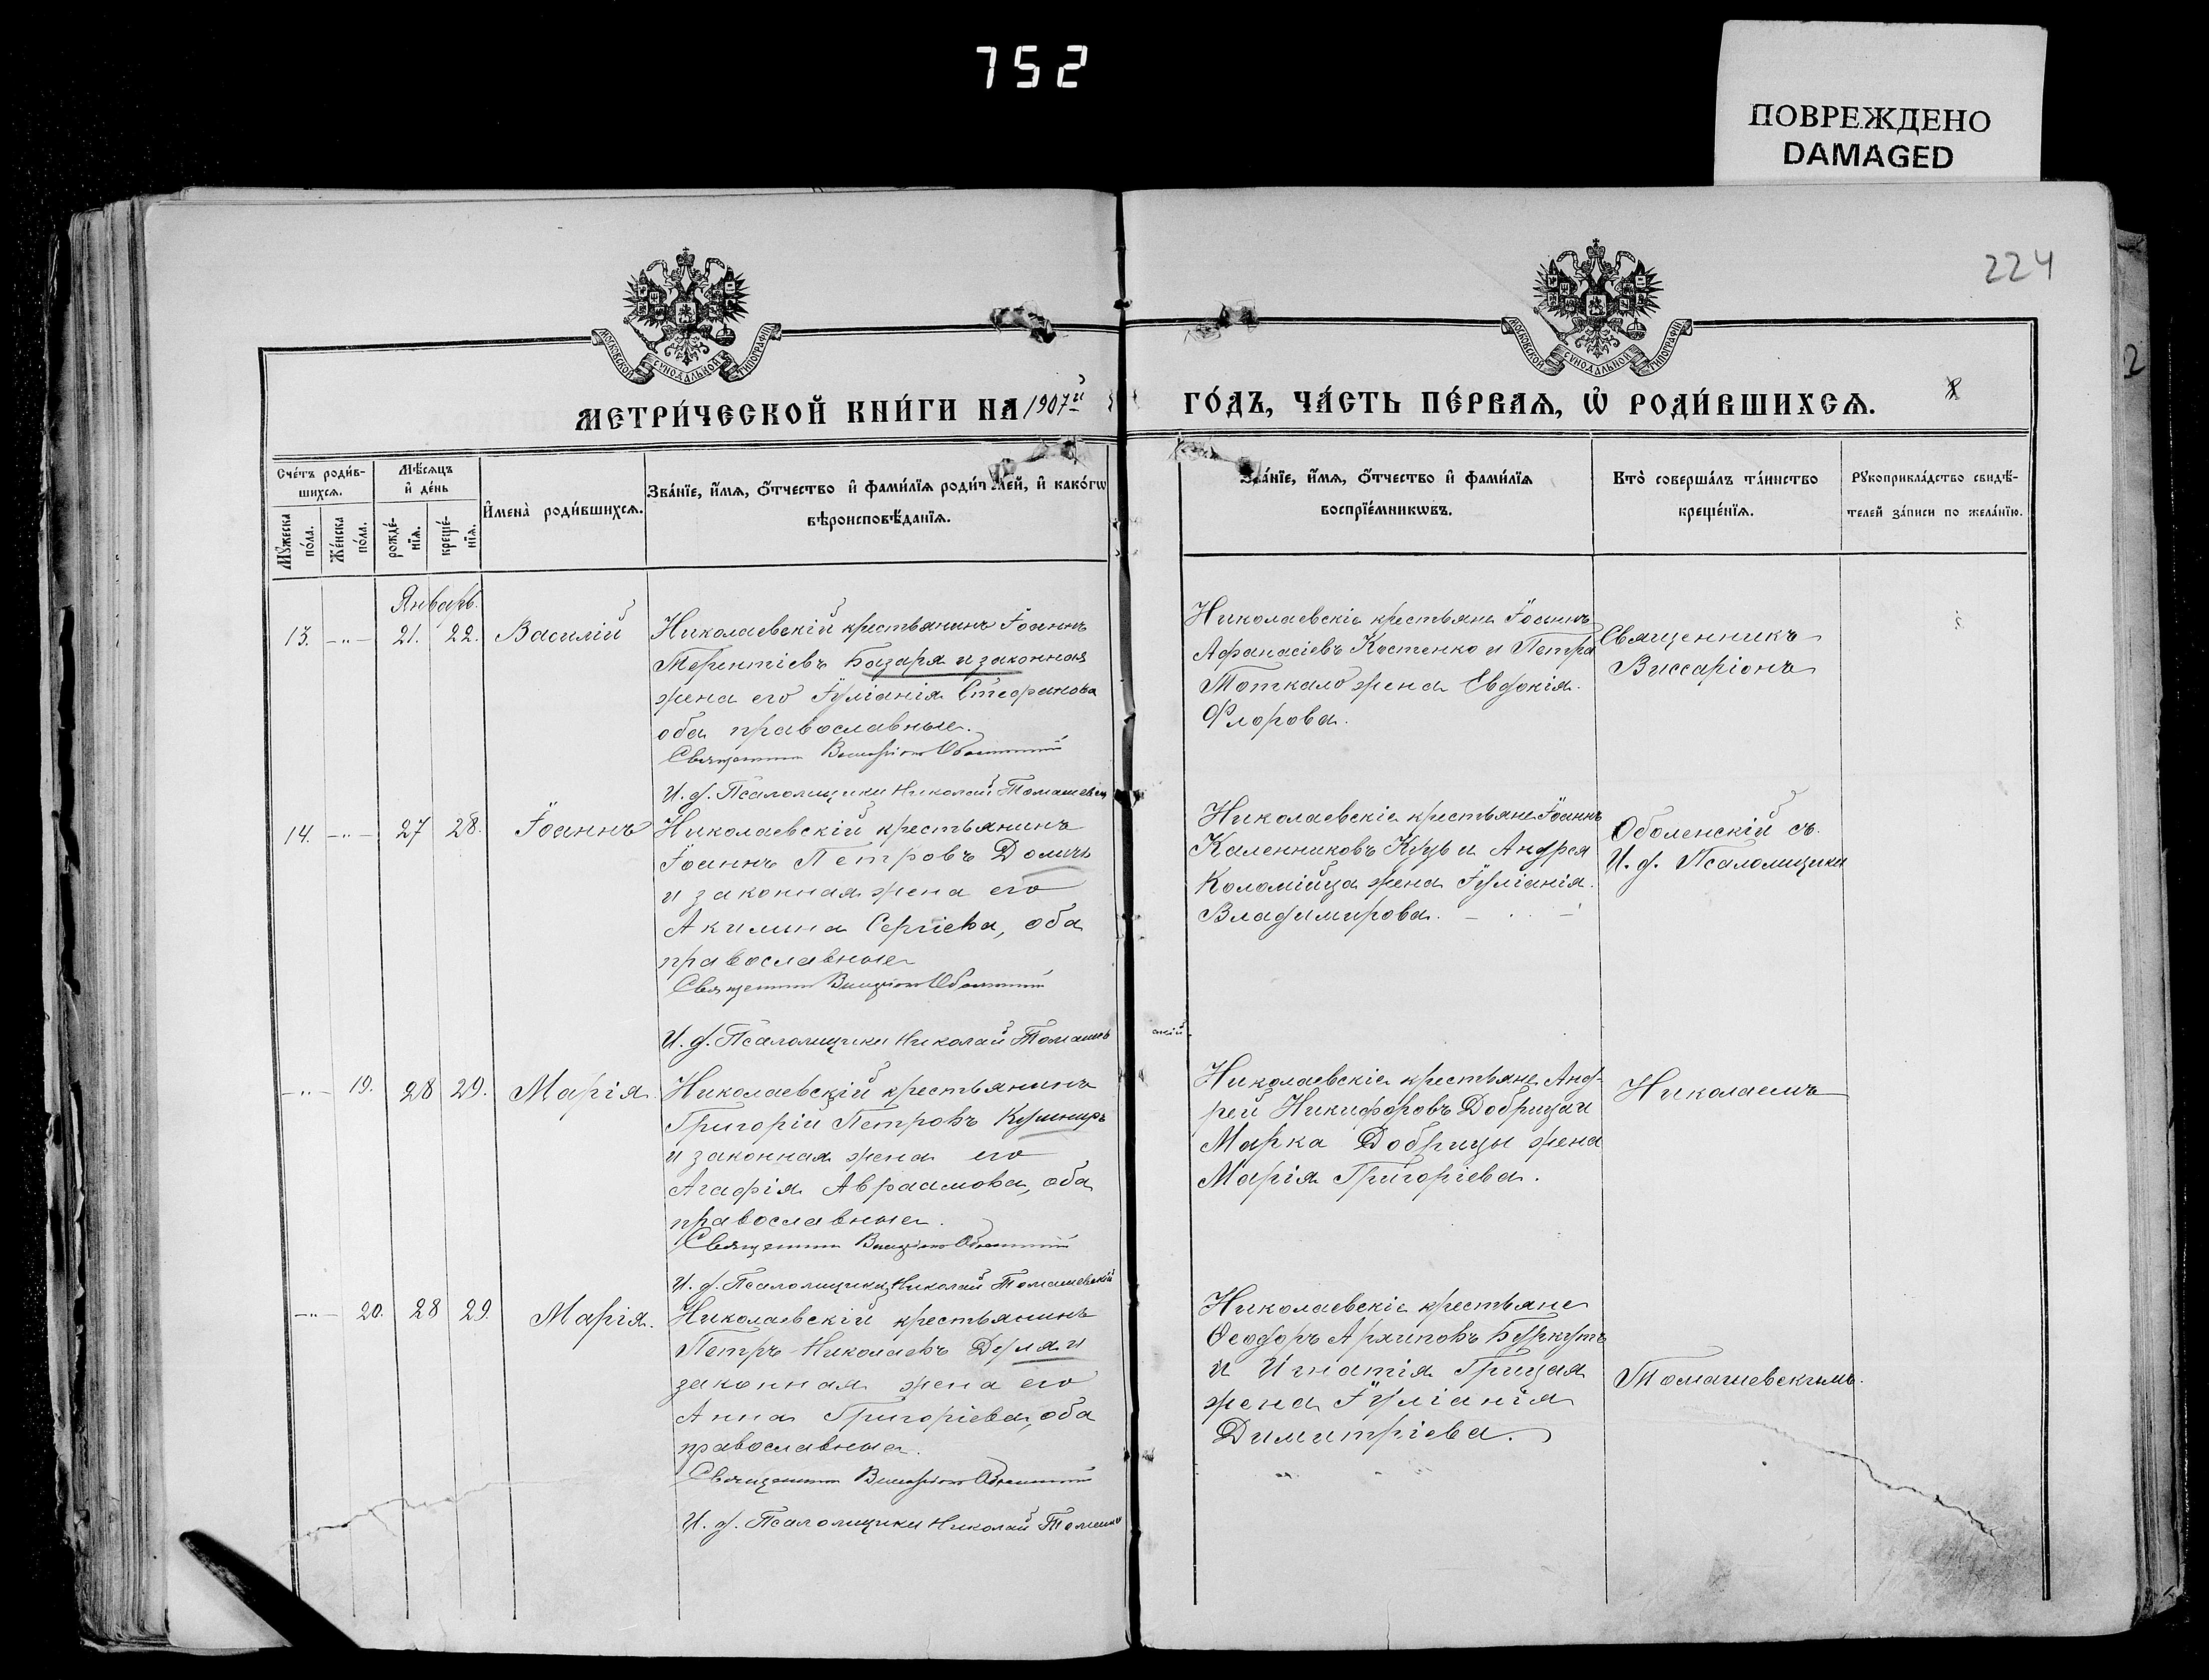 752
ПОВРЕЖДЕНО
DAMAGED
224
2
МОСКОВСКОЙ СУНОДАЛЬНОЙ ТИПОГРАФІИ
МОСКОВСКОЙ СУНОДАЛЬНОЙ ТИПОГРАФІИ
МЕТРИ́ЧЕСКОЙ КНИ́ГИ НА 1907й
ГО́ДЪ, ЧА́СТЬ ПЕ́РВАѦ, Ѡ РОДИ́ВШИХСѦ.
Сче́тъ роди́в-
шихсѧ.
Мꙋжеска по́ла.
Же́нска по́ла.
Мѣ́сѧцъ
и҆ де́нь
рожде́-
нїѧ.
креще́-
нїѧ.
И҆мена̀ роди́вшихсѧ.
Зва́нїе, и҆́мѧ, ѻ҆́тчество и҆ фами́лїѧ роди́телей, и҆ како́гѡ
вѣроисповѣ́данїѧ.
Зва́нїе, и҆́мѧ, ѻ҆́тчество и҆ фами́лїѧ
воспрїе́мникѡвъ.
Кто̀ соверша́лъ та́инство
креще́нїѧ.
Рꙋкоприкла́дство свидѣ́-
телей за́писи по жела́нїю.
Январь.
13. -"- 21. 22. Василій
Николаевскій крестьянинъ Іоаннъ
Терентіевъ Базаря и законная
жена его Іуліанія Стефанова
оба православные.
Священникъ Виссаріонъ Оболенскій
И. д. Псаломщика Николай Томашевск
Николаевскіе крестьяне Іоаннъ
Афанасіевъ Костенко и Петра
Тоткало жена Евдокія
Флорова.
Священникъ
Виссаріонъ
14. -"- 27 28. Іоаннъ
Николаевскій крестьянинъ
Іоаннъ Петровъ Доличъ
и законная жена его
Акилина Сергіева, оба
православные
Священникъ Виссаріонъ Оболенскій
И. д. Псаломщика Николай Томашев
скій
Николаевскіе крестьяне Іоаннъ
Каленниковъ Куць и Андрея
Коломійца жена Іуліанія
Владимирова.
Оболенскій съ
И. д. Псаломщика
-"- 19. 28 29. Марія.
Николаевскій крестьянинъ
Григорій Петровъ Кушниръ
и законная жена его
Агафія Авраамова, оба
православные.
Священникъ Виссаріонъ Оболенскій
И. д. Псаломщика Николай Томашевскій
Николаевскіе крестьяне Анд-
рей Никифоровъ Добрица и
Марка Добрицы жена
Марія Григоріева.
Николаемъ
-"- 20. 28 29. Марія.
Николаевскій крестьянинъ
Петръ Николаевъ Дуля и
законная жена его
Анна Григоріева, оба
православные.
Священникъ Виссаріонъ Оболенскій
И. д. Псаломщика Николай Томаш
Николаевскіе крестьяне
Ѳеодоръ Архиповъ Буркутъ
и Игнатія Грицая
жена Іуліанія
Димитріева.
Томашевскимъ.